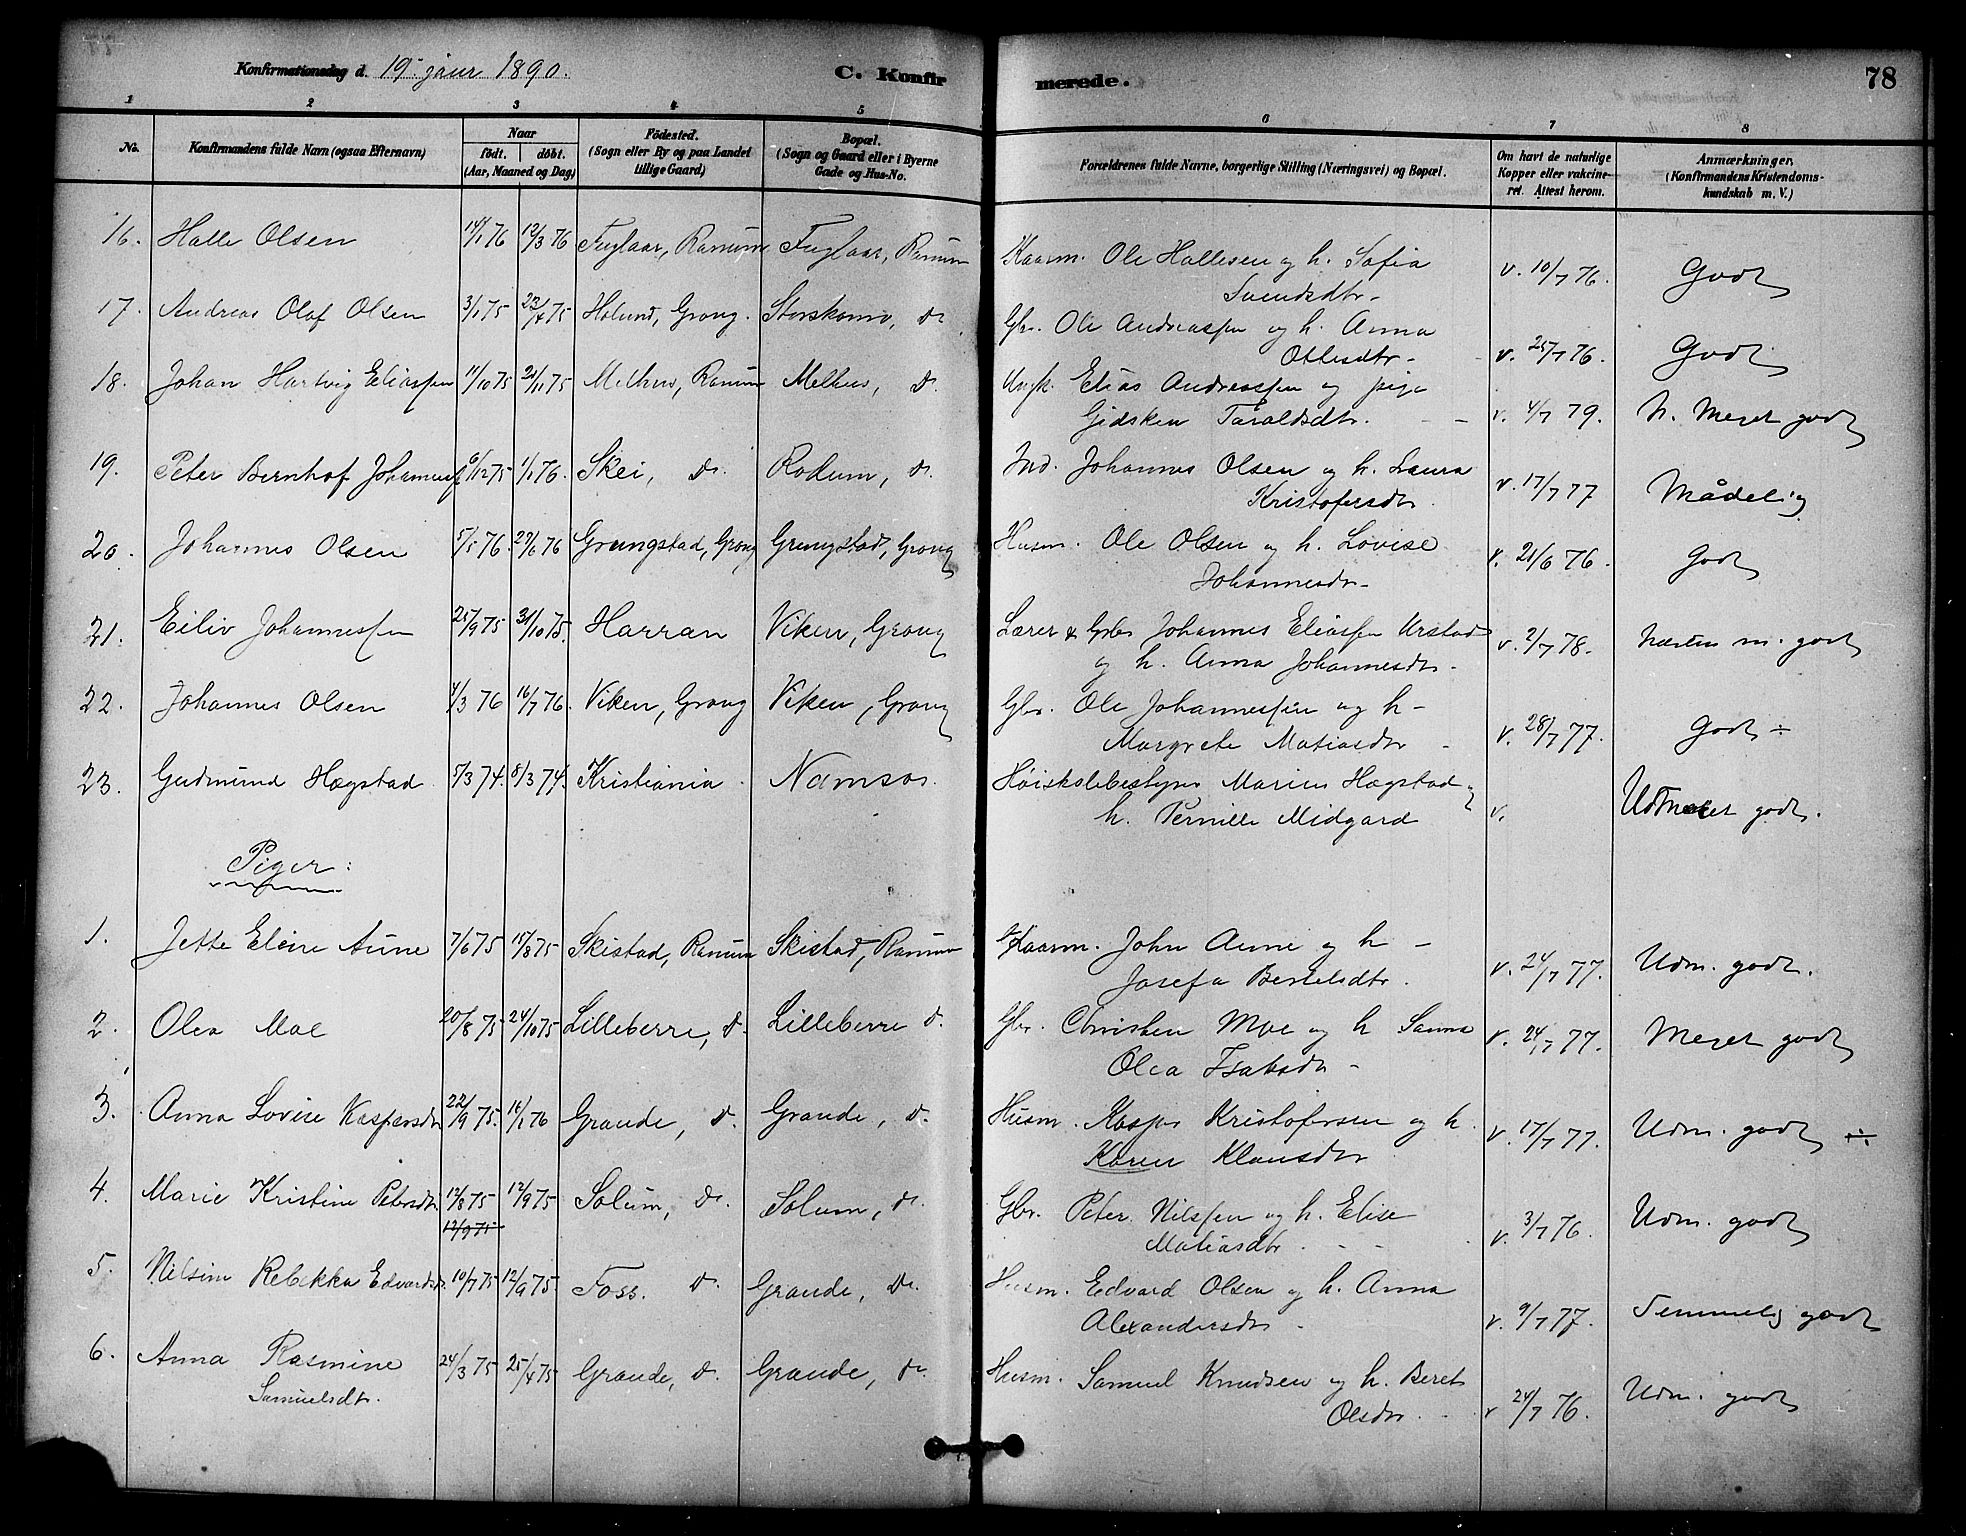 Konfirmationsdag d. 19. januar 1890. C. Konfirmerede. 78
1 2 3 4 5 6 7 8
No. Konfirmandens fulde Navn (ogsaa Efternavn) Naar født. døbt. (Aar, Maaned og Dag) Födested. (Sogn eller By og paa Landet tillige Gaard) Bopæl. (Sogn og Gaard eller i Byerne Gade og Hus-No. Forældrenes fulde Navne, borgerlige Stilling (Næringsvei) og Bopæl. Om havt de naturlige Kopper eller vakcineret. Attest herom. Anmærkninger. (Konfirmandens Kristendomskundskab m. V.)
16. Halle Olsen 14/1 76 12/3 76 Fuglaar, Ranum Fuglaar, Ranum Kaarm. Ole Hallesen og h. Sofia
Svendsdtr. v. 10/7 76. Godt
17. Andreas Olaf Olsen 3/1 75 23/4 75 Grong. do. Gbr. Ole Andreassen og h. Anna
Ottesdtr. v. 25/7 76. Godt
18. Johan Hartvig Eliassen 11/10 75 21/11 75 Melhus, Ranum Melhus, do. Ungk. Elias Andreassen og pige
Gidsken Taraldsdtr. v. 4/7 79. N. Meget godt
19. Peter Bernhof Johannes 6/12 75 1/1 76. Skei, do. Rodum, do. Ind. Johannes Olsen og h. Laura
Kristofersdtr. v. 17/7 77 Mådelig
20. Johannes Olsen 5/5 76. 27/6 76 Grungstad, Grong Grungstad, Grong Husm. Ole Olsen og h. Lovise
Johannesdtr. v. 21/6 76. Godt
21. Eiliv Johannessen 25/9 75 31/10 75. Harran Viken, Grong Lærer & Gbr. Johannes Eliassen Urstad
og h. Anna Johannesdtr. v. 2/7 78. Næsten m. godt
22. Johannes Olsen 4/3 76 16/7 76. Viken, Grong Viken, Grong Gbr. Ole Johannessen og h
Margrete Matiasdtr v. 28/7 77. Godt ÷
23. Gudmund Hægstad 5/3 74. 8/3 74. Kristiania. Namsos. Høiskolebestyrer Marius Hægstad og
h. Pernille Midgard v. Udmerket godt.
Piger:
1. Jette Eline Aune 7/6 75 15/8 75 Skistad, Ranum Skistad, Ranum Kaarm. John Aune og h
Josefa Bertelsdtr. v. 24/7 77. Udm. godt.
2. Olea Moe 20/8 75 24/10 75 Lilleberre, do. Lilleberre do. Gbr. Christen Moe og h Sanna
Olea Isaksdtr v. 24/7 77. Meget godt
3. Anna Lovise Kaspersdtr 22/9 75. 16/1 76 Grande, do. Grande, do. Husm. Kasper Kristofersen og h.
Karen Klausdtr v. 17/7 77. Udm. godt ÷
4. Marie Kristine Petersdtr 12/8 75 12/9 75 Solum, do. Solum, do. Gbr. Peter Nilssen og h. Elise
12/9 75
Matiasdtr. v. 3/7 76. Udm. godt
5. Nilsine Rebekka Edvardsd. 10/7 75 12/9 75. Foss. do Grande, do. Husm. Edvard Olsen og h. Anna
Alexandersdtr v. 9/7 77. Temmelig godt
6. Anna Rasmine 24/3 75 25/4 75 Grande, do. Grande, do. Husm. Samuel Knudsen og h. Beret
Samuelsdtr. Olsdtr. v 24/7 76. Udm. godt